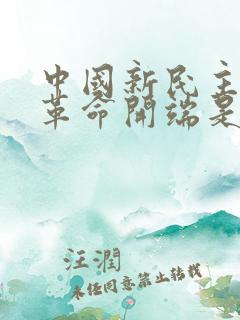 中國新民主
革命開端是
汪潤
未經同意禁止轉載